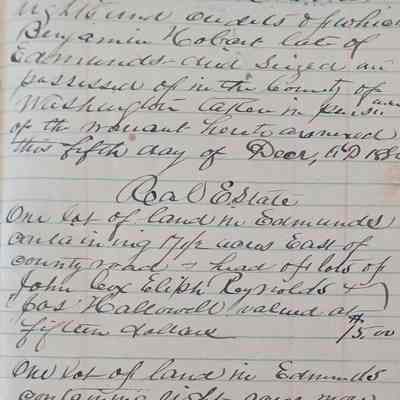 rights and credits of which
Benjamin Hobart late of
Edmunds died seized and
possessed of in the County of
Washington taken in
of the warrant hereto annexed
this fifth day of Decr, AD 188
Real Estate
One lot of land in Edmunds
containing 17 1/2 acres East of
county road & head of lots of
John Cox Eliph Reynolds &
Jos Hallowell valued at
fifteen dollars $15.00
One lot of land in Edmunds
containing eight acres more